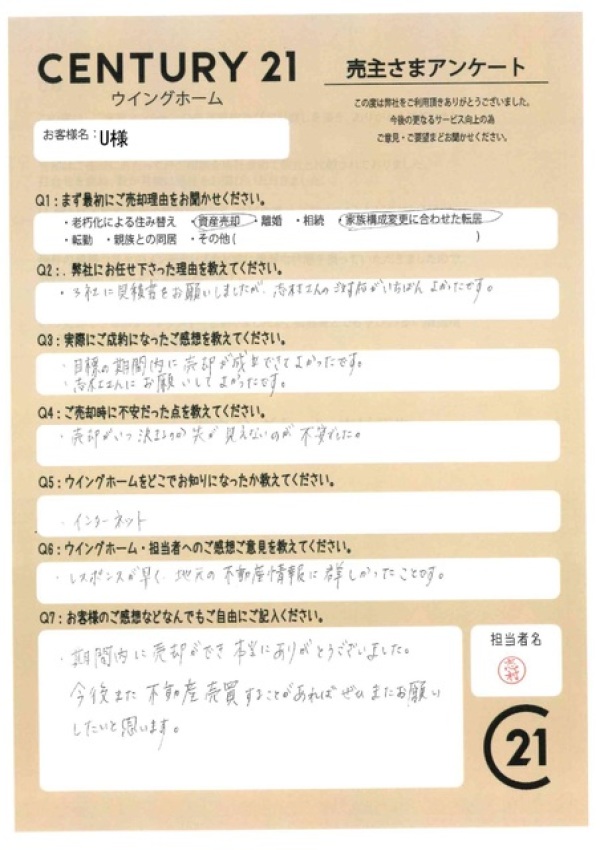 CENTURY 21
ウイングホーム
売主さまアンケート
この度は弊社をご利用頂きありがとうございました。
今後の更なるサービス向上の為
ご意見・ご要望まどお聞かせください。
お客様名：U様
Q1：まず最初にご売却理由をお聞かせください。
・老朽化による住み替え ・資産売却 ・離婚 ・相続 ・家族構成変更に合わせた転居
・転勤 ・親族との同居 ・その他( )
Q2：. 弊社にお任せ下さった理由を教えてください。
・3社に見積書をお願いしましたが、志村さんの対応がいちばん よかったです。
Q3：実際にご成約になったご感想を教えてください。
・目標の期間内に売却が成立できてよかったです。
・志村さんにお願いしてよかったです。
Q4：ご売却時に不安だった点を教えてください。
・売却がいつ決まるのか 先が見えないのが不安でした。
Q5：ウイングホームをどこでお知りになったか教えてください。
・インターネット
Q6：ウイングホーム・担当者へのご感想ご意見を教えてください。
・レスポンスが早く、地元の不動産情報に詳しかったことです。
Q7：お客様のご感想などなんでもご自由にご記入ください。
・期間内に売却ができ 本当にありがとうございました。
今後また不動産売買することがあればぜひまたお願い
したいと思います。
担当者名
志村
C21